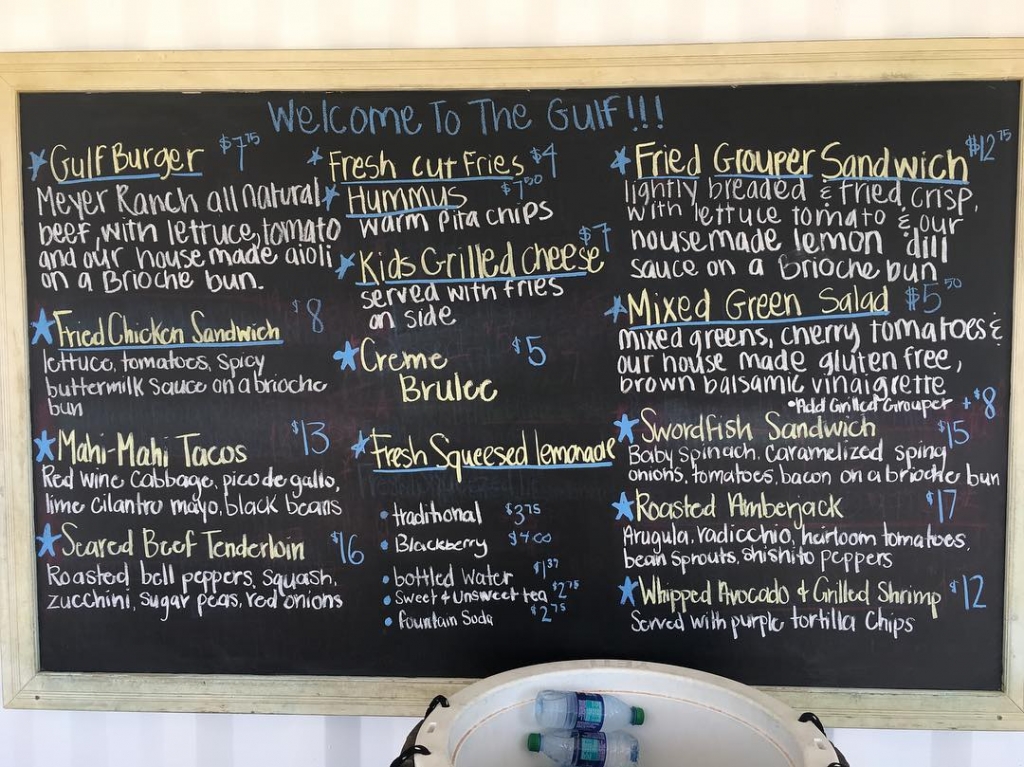 Welcome To The Gulf!!!
Gulf Burger $7.75
Meyer Ranch all natural
beef, with lettuce, tomato
and our house made aioli
on a Brioche bun.
Fried Chicken Sandwich $8
lettuce, tomatoes, spicy
buttermilk sauce on a brioche
bun
Mahi-Mahi Tacos $13
Red wine cabbage, pico de gallo,
lime cilantro mayo, black beans
Seared Beef Tenderloin $16
Roasted bell peppers, squash,
zucchini, sugar peas, red onions
Fresh cut Fries $4
Hummus $7.50
warm pita chips
Kids Grilled Cheese $7
served with fries
on side
Creme $5
Brulee
Fresh Squeesed lemonade
• traditional $3.75
• Blackberry $4.00
• bottled Water $1.37
• Sweet & Unsweet tea $2.75
• Fountain Soda $2.75
Fried Grouper Sandwich $12.75
lightly breaded & fried crisp,
with lettuce tomato & our
housemade lemon dill
sauce on a Brioche bun
Mixed Green Salad $5.50
mixed greens, cherry tomatoes &
our house made gluten free,
brown balsamic vinaigrette
• Add Grilled Grouper +$8
Swordfish Sandwich $15
Baby spinach, caramelized sping
onions, tomatoes, bacon on a brioche bun
Roasted Amberjack $17
Arugula, radicchio, heirloom tomatoes,
bean sprouts, shishito peppers
Whipped Avocado & Grilled Shrimp $12
Served with purple tortilla chips